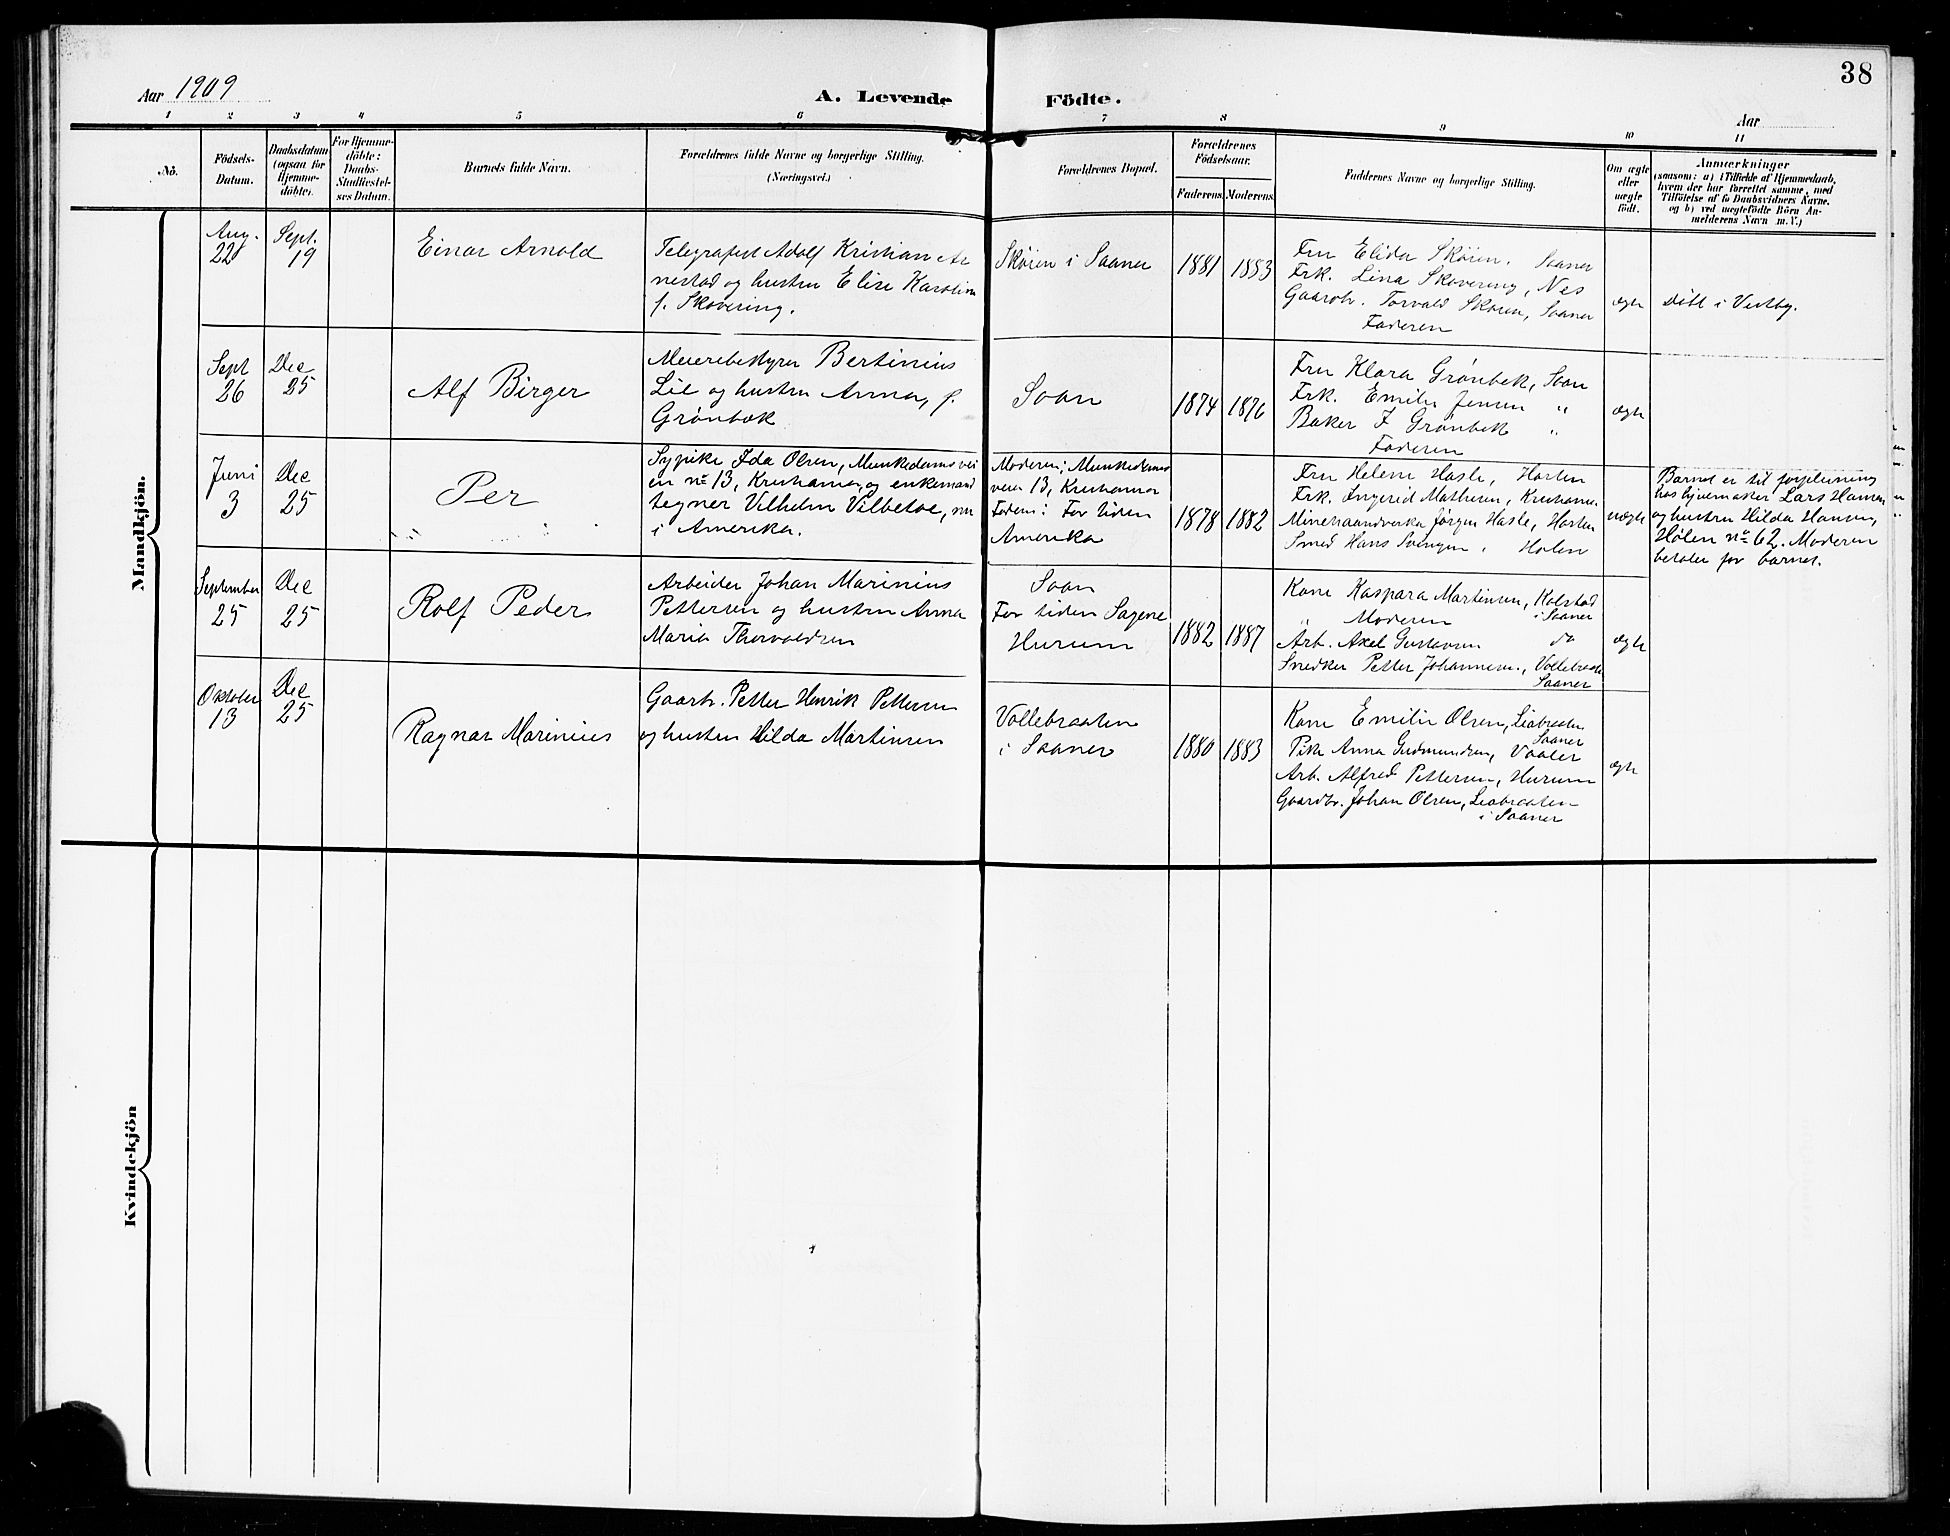 38
Aar 1909
A. Levende Födte.
Aar
1 2 3 4 5 6 7 8 9 10 11
No.
Födsels-
Datum.
Daabsdatum
(ogsaa for
Hjemme-
döbte).
For Hjemme-
döbte:
Daabs-
Stadfæstel-
ses Datum.
Barnets fulde Navn.
Forældrenes fulde Navne og borgerlige Stilling.
(Næringsvei.)
Forældrenes Bopæl.
Forældrenes
Födselsaar.
Faderens. Moderens.
Faddernes Navne og borgerlige Stilling.
Om ægte
eller
uægte
födt.
Anmærkninger
(saasom: a) i Tilfælde af Hjemmedaab,
hvem der har forrettet samme, med
Tilföielse af to Daabsvidners Navne.
og b) ved uægtefödte Börn An-
melderens Navn m.V.)
Mandkjön.
Aug.
22
Sept.
19
Einar Arnold
Telegrafist Adolf Kristian Ar
nestad og hustru Elise Karoline
f. Skovering.
Skøien i Saaner
1881
1883
Fru Elida Skøien. Saaner
Frk. Lina Skovering, Nes
Gaardbr. Torvald Skøien, Saaner
Faderen
ægte
Døbt i Vestby.
Sept
26
Dec
25
Alf Birger
Meieribestyrer Bertinius
Lie og hustru Anna, f.
Grønbæk
Soon
1874
1876
Fru Klara Grønbek, Soon
Frk. Emilie Jensen "
Baker F Grønbek "
Faderen
ægte
Juni
3
Dec
25
Per
Sypike Ida Olsen, Munkedamsvei
en no 13, Kristiania, og enkemand
tegner Vilhelm Vilbetoe, nu
i Amerika.
Moderen: Munkedams
veien 13, Kristiania
Faderen: For tiden
Amerika
1878
1882
Fru Helene Hasle, Horten
Frk. Ingerid Mathesen, Kristiania
Minehaandverker Jørgen Hasle, Horten
Smed Hans Svingen, Hølen
uægte
Barnet er til forpleining
hos hjulmaker Lars Hansen
og hustru Hilda Hansen,
Hølen no 62. Moderen
betaler for barnet.
September
25
Dec
25
Rolf Peder
Arbeider Johan Marinius
Pettersen og hustru Anna
Maria Thorvaldsen
Soon
For tiden Sagene
Hurum
1882
1887
Kone Kaspara Martinsen, Kolstad
i Saaner
" Moderen
Arb. Axel Gustavsen do
Snedker Petter Johannesen, Vollebraaten
Saaner
ægte
Oktober
13
Dec
25
Ragnar Marinius
Gaarbr. Petter Henrik Pettersen
og hustru Hilda Martinsen
Vollebraaten
i Saaner
1880
1883
Kone Emilie Olsen, Liabraaten
Saaner
Pike Anna Gudmundsen, Vaaler
Arb. Alfred Pettersen, Hurum
Gaardbr. Johan Olsen, Liabraaten
i Saaner
ægte
Kvindekjön